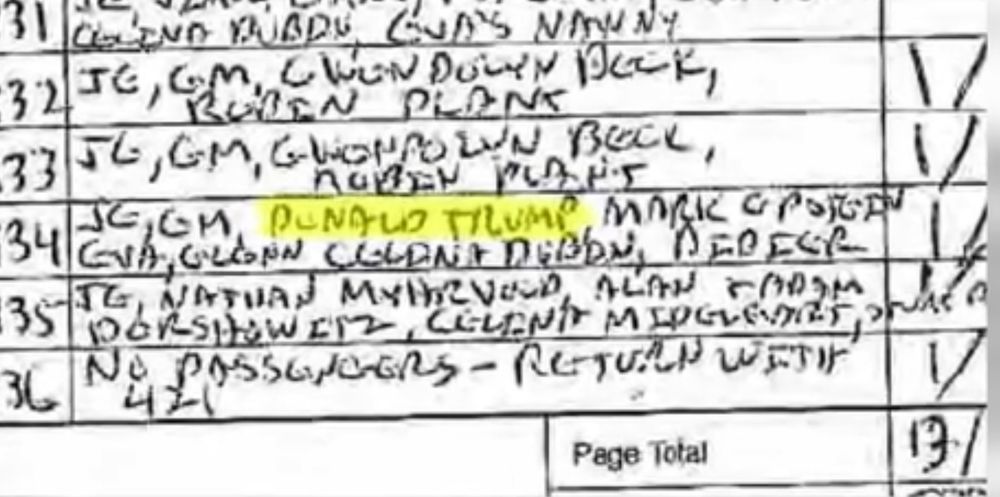 31
CELINA DUBIN, EVA'S NANNY
32 JE, GM, GWENDOLYN BECK,
ROBIN PLANK
33 JE, GM, GWENDOLYN BECK,
ROBIN PLANK
34 JE, GM, DONALD TRUMP, MARK EPSTEIN
EVA, GLENN CELENA DUBIN, DIDIER
35 JE, NATHAN MYHRVOLD, ALAN + ADAM
DERSHOWITZ, CELINA MIDELFART,
36 NO PASSENGERS - RETURN WITH
421
Page Total 13/